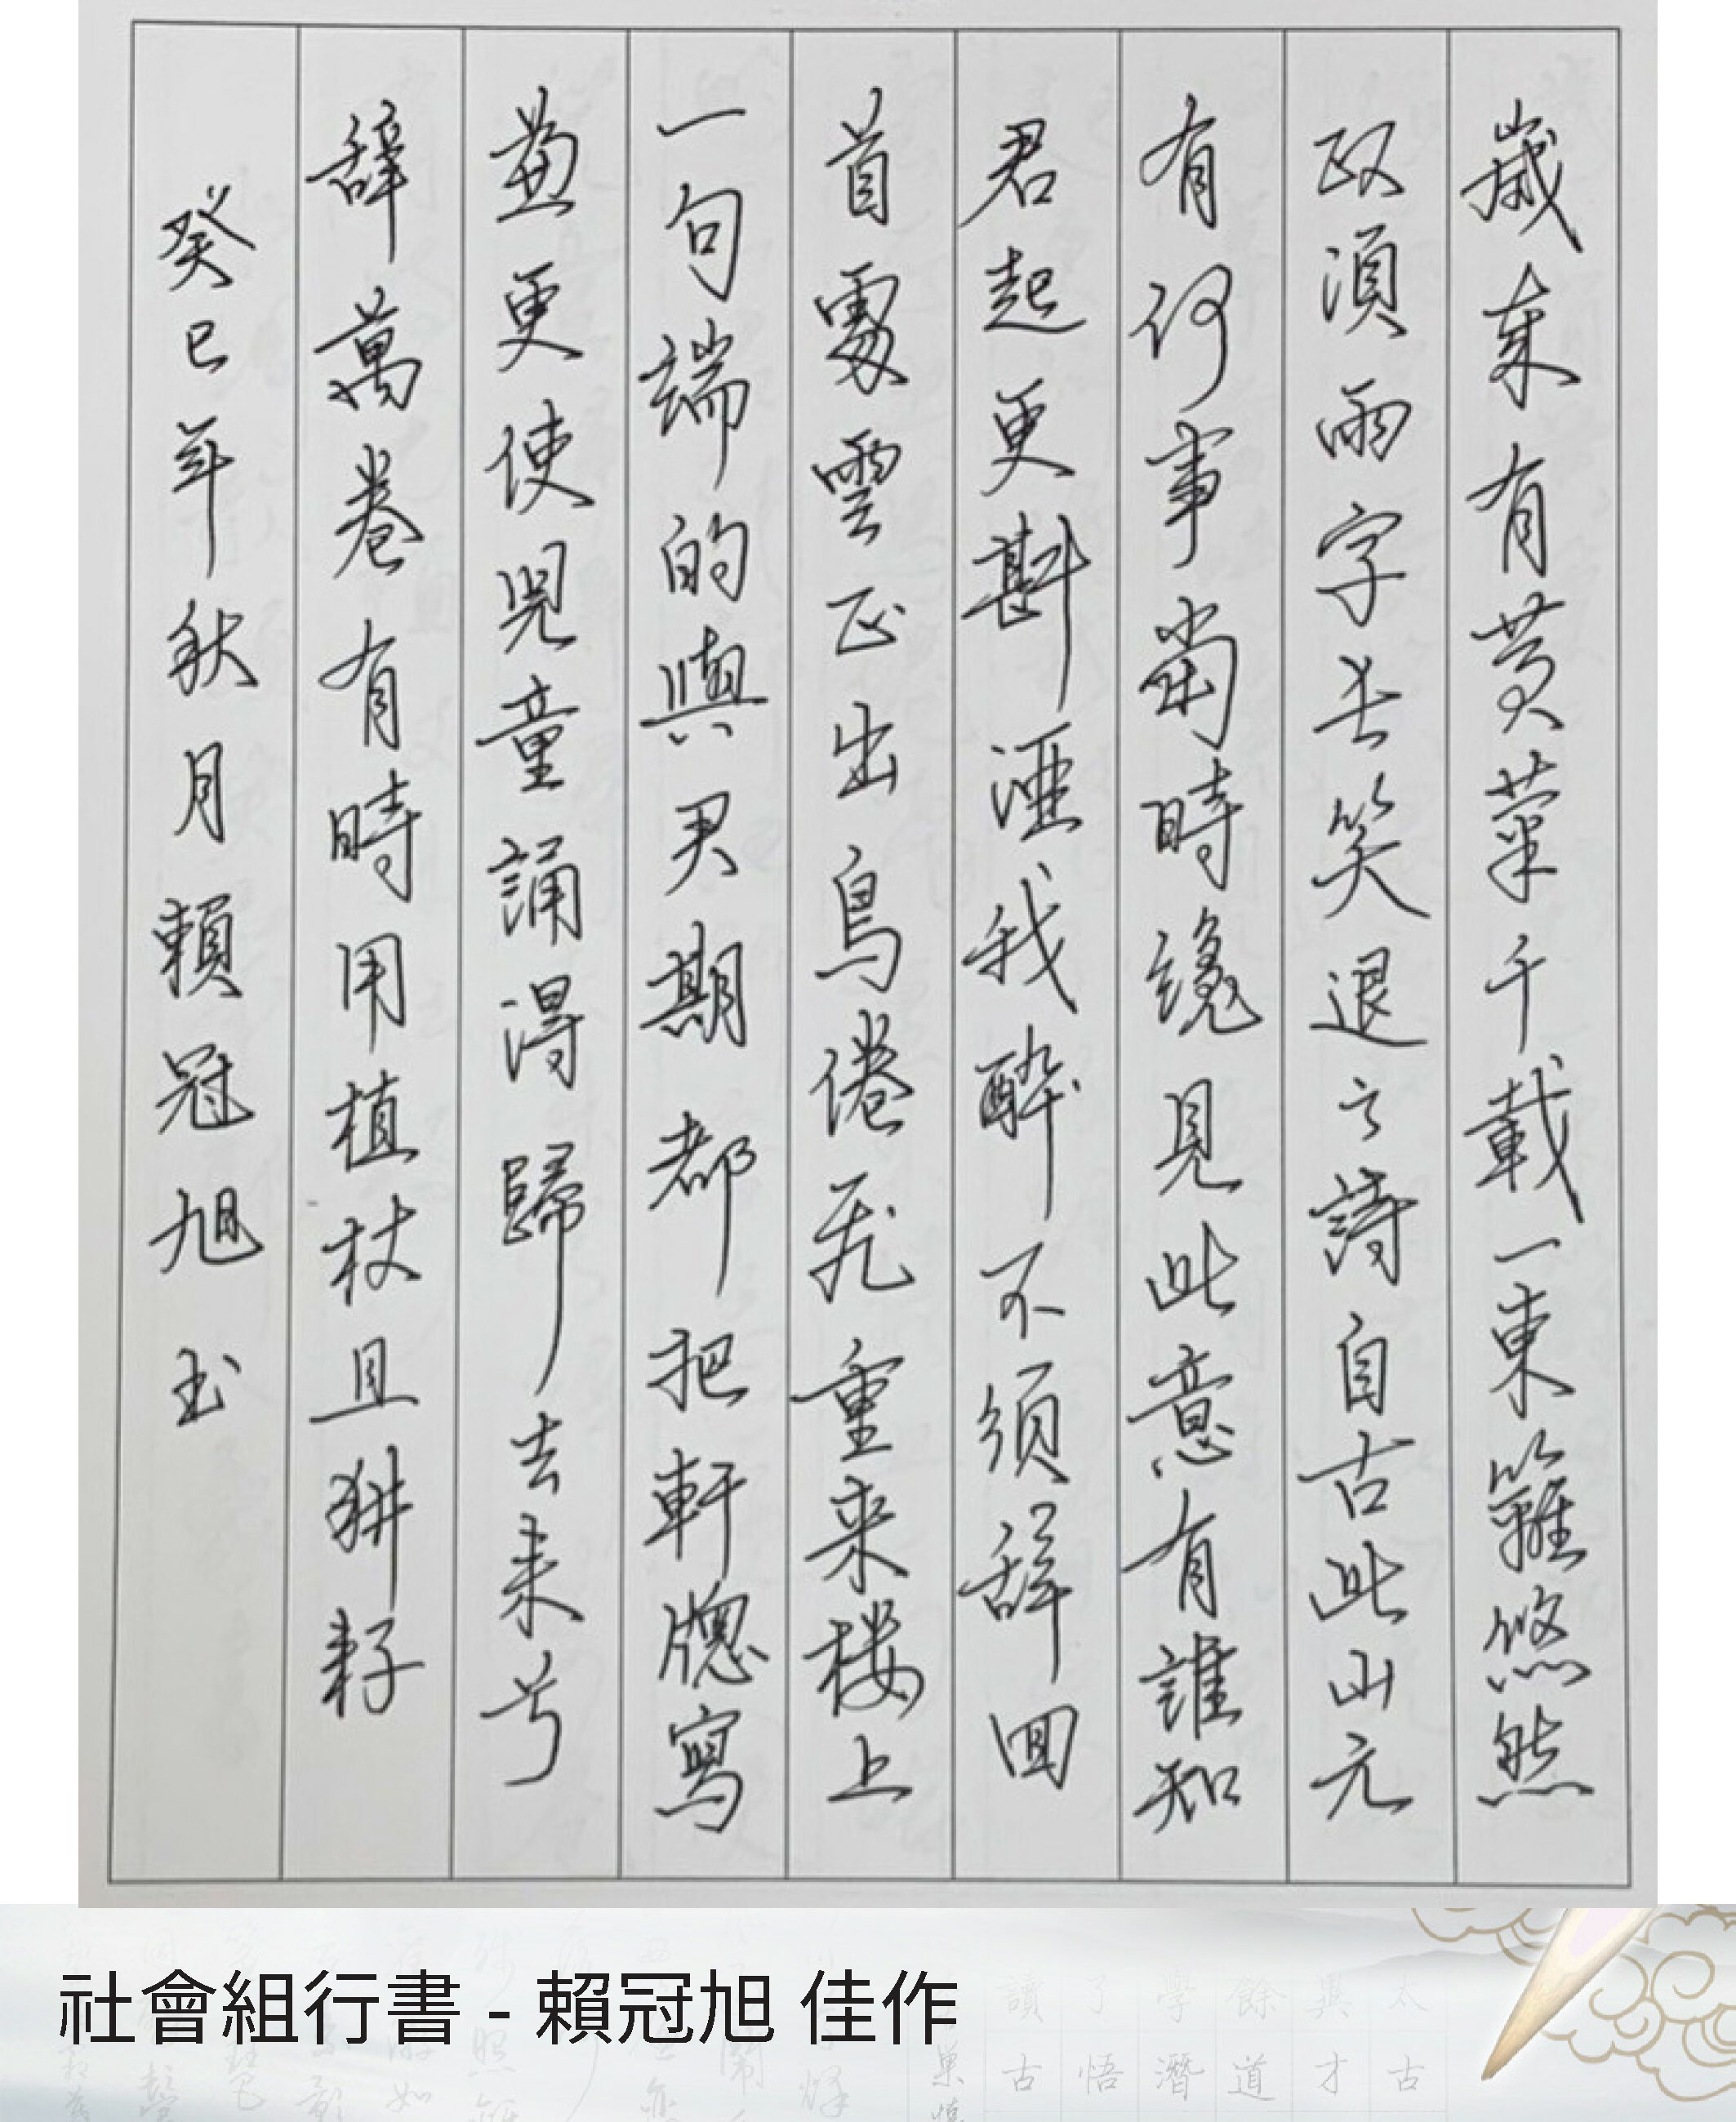 歲來有黃菊千載一東籬悠然
政須兩字長笑退之詩自古此山元
有何事當時纔見此意有誰知
君起更斟酒我醉不須辭回
首處雲正出鳥倦飛重來樓上
一句端的與君期都把軒牕寫
遍更使兒童誦得歸去來兮
辭萬卷有時用植杖且耕耔
癸巳年秋月賴冠旭書
社會組行書 - 賴冠旭 佳作